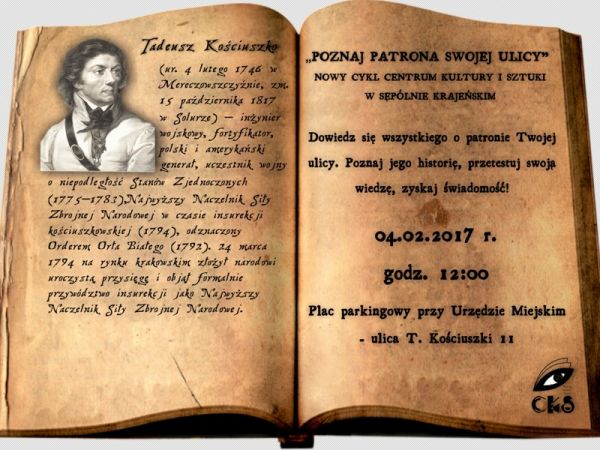 Tadeusz Kościuszko
(ur. 4 lutego 1746 w
Mereczowszczyźnie, zm.
15 października 1817
w Solurze) – inżynier
wojskowy, fortyfikator,
polski i amerykański
generał, uczestnik wojny
o niepodległość Stanów Zjednoczonych
(1775–1783),Najwyższy Naczelnik Siły
Zbrojnej Narodowej w czasie insurekcji
kościuszkowskiej (1794), odznaczony
Orderem Orła Białego (1792). 24 marca
1794 na rynku krakowskim złożył narodowi
uroczystą przysięgę i objął formalnie
przywództwo insurekcji jako Najwyższy
Naczelnik Siły Zbrojnej Narodowej.
„POZNAJ PATRONA SWOJEJ ULICY”
NOWY CYKL CENTRUM KULTURY I SZTUKI
W SĘPÓLNIE KRAJEŃSKIM
Dowiedz się wszystkiego o patronie Twojej
ulicy. Poznaj jego historię, przetestuj swoją
wiedzę, zyskaj świadomość!
04.02.2017 r.
godz. 12:00
Plac parkingowy przy Urzędzie Miejskim
- ulica T. Kościuszki 11
CKS